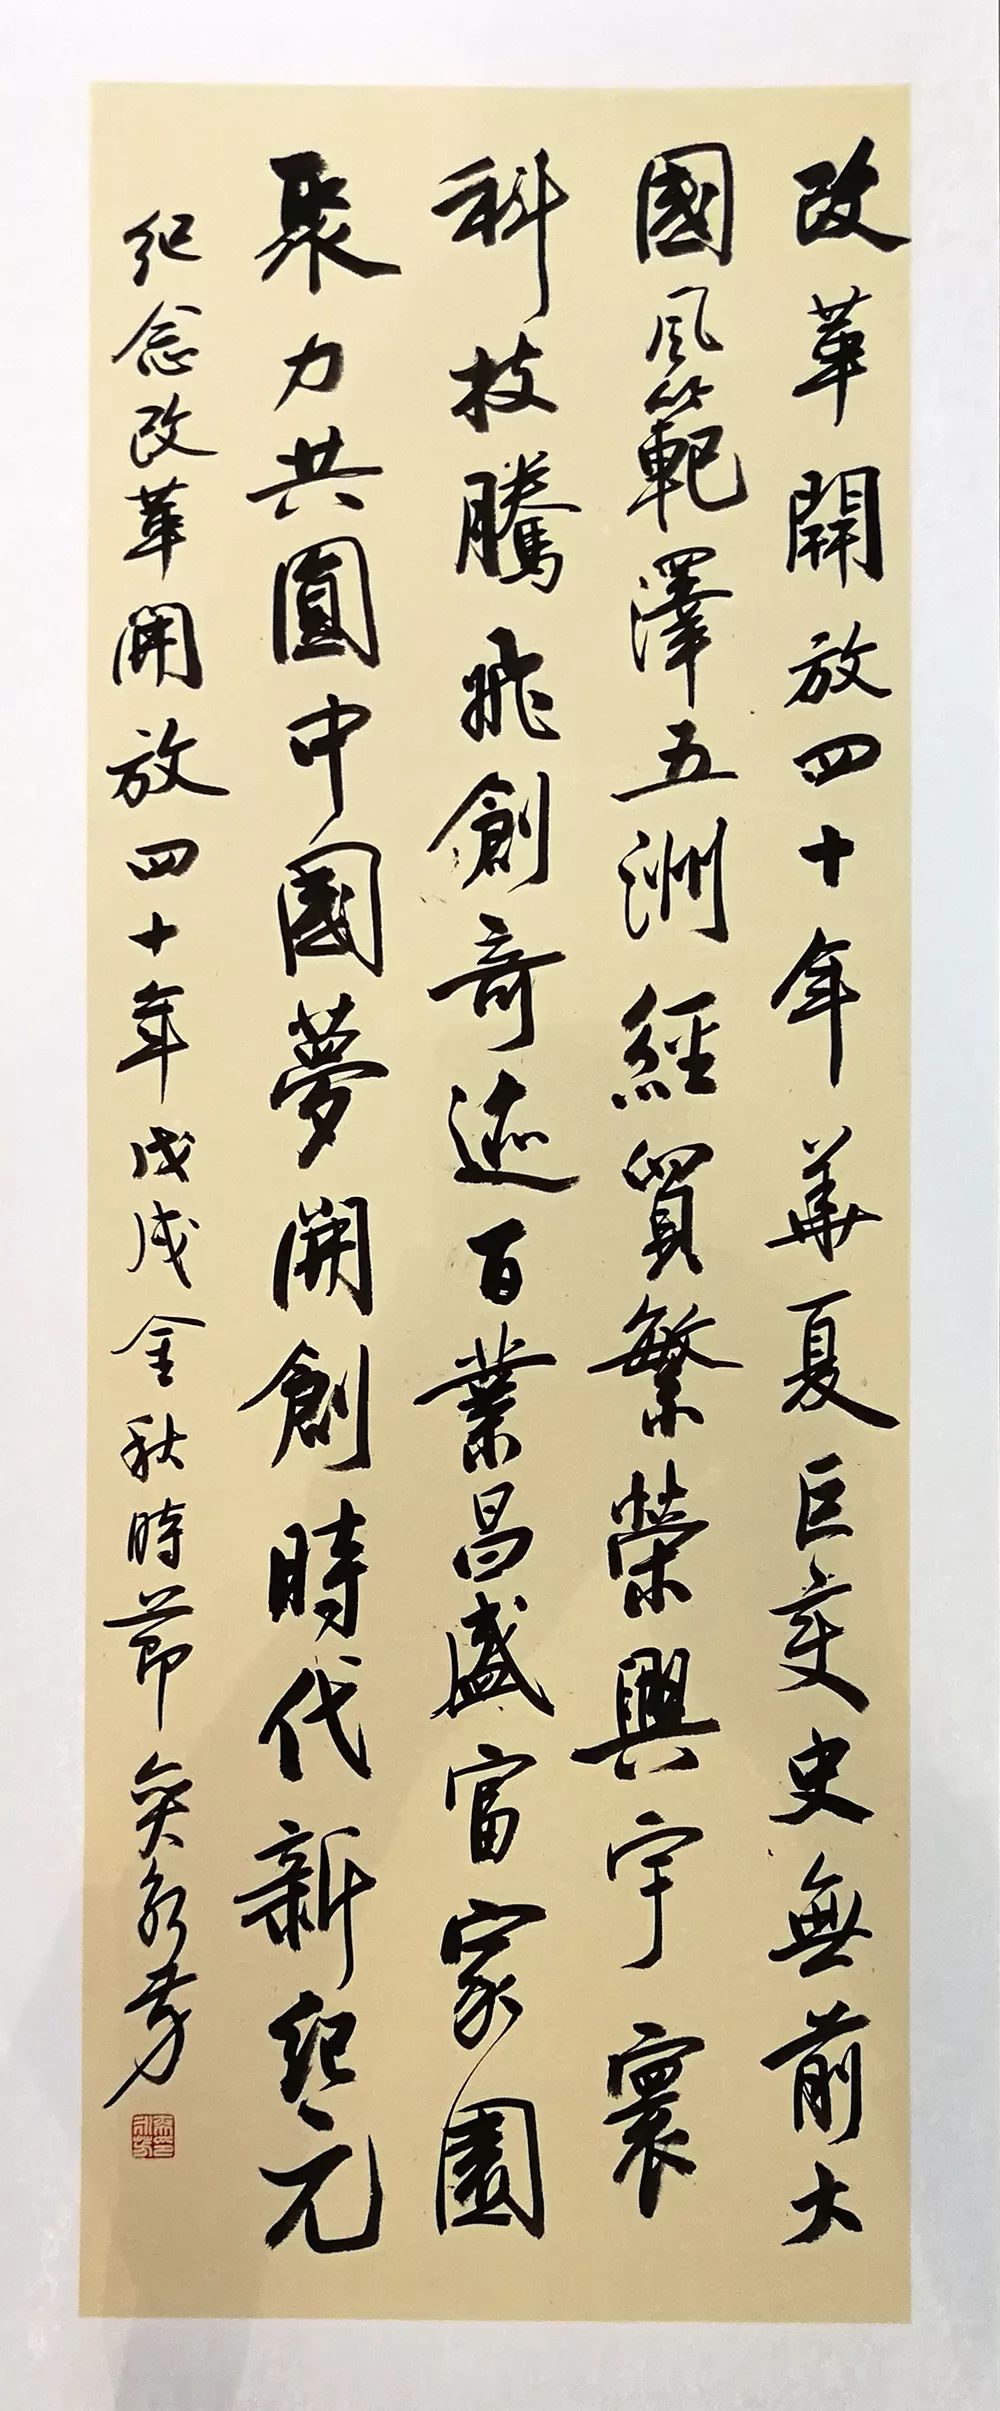 改革開放四十年華夏巨变史無前大
國風範澤五洲經貿繁榮興宇寰
科技騰飛創奇迹百業昌盛富家園
聚力共圓中國夢開創時代新紀元
纪念改革開放四十年戊戌金秋時節